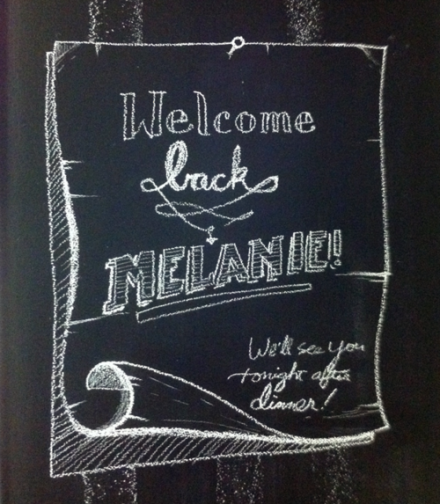 Welcome
back
MELANIE!
We'll see you
tonight after
dinner!